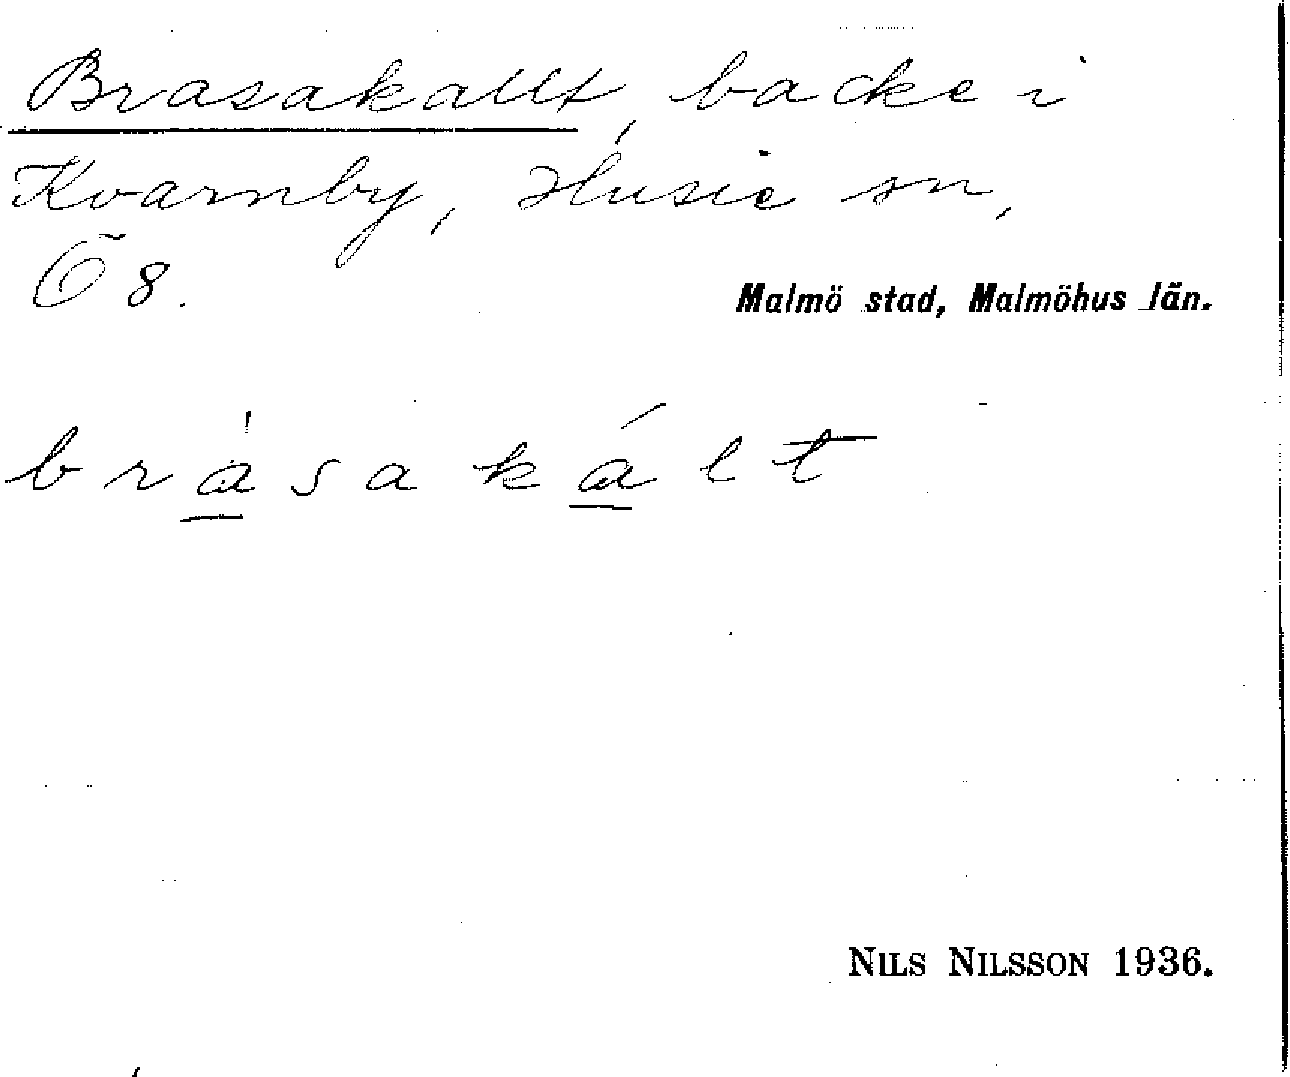 Brasakallt, backe i
Kvarnby, Husie sn,
Ö 8.
Malmö stad, Malmöhus län.
bra̲̍saká̲lt
NILS NILSSON 1936.